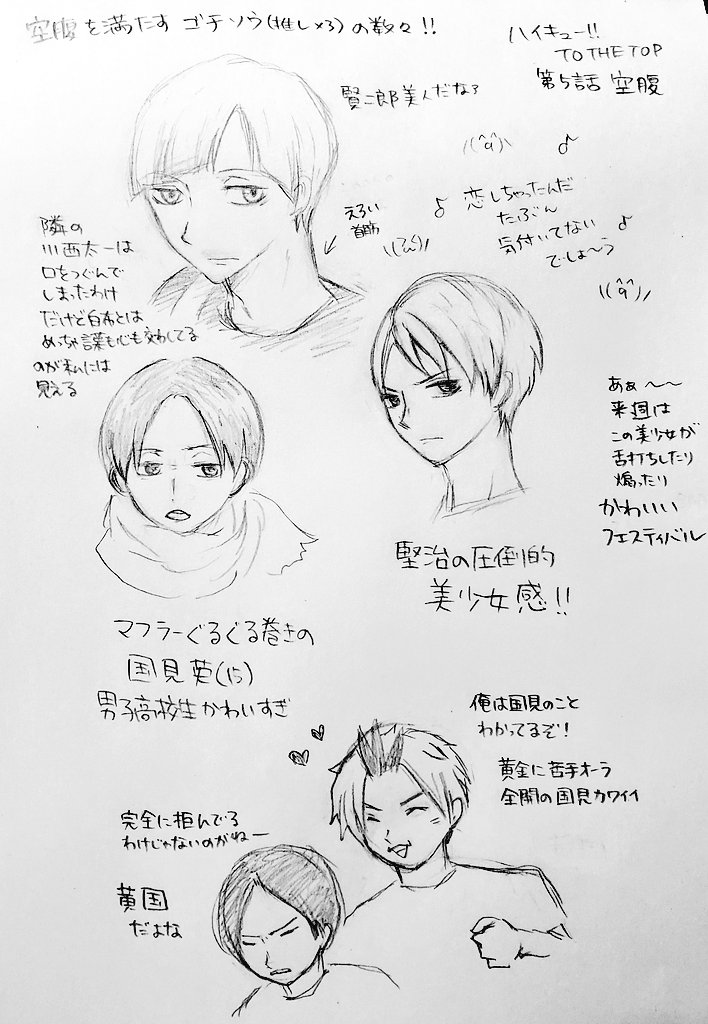 空腹を満たす ゴチソウ(推し×3)の数々!!
ハイキュー!!
TO THE TOP
第5話 空腹
賢二郎美人だな?
えろい
首筋
恋しちゃったんだ
たぶん
気付いてない
でしょ〜う
隣の
川西太一は
口をつぐんで
しまったわけ
だけど白布とは
めっちゃ言葉も心も交わしてる
のが私には
見える
あぁ〜〜
来週は
この美少女が
舌打ちしたり
煽ったり
かわいい
フェスティバル
堅治の圧倒的
美少女感!!
マフラーぐるぐる巻きの
国見英(15)
男子高校生かわいすぎ
俺は国見のこと
わかってるぞ!
黄金に苦手オーラ
全開の国見カワイイ
完全に拒んでる
わけじゃないのがねー
黄国
だよな